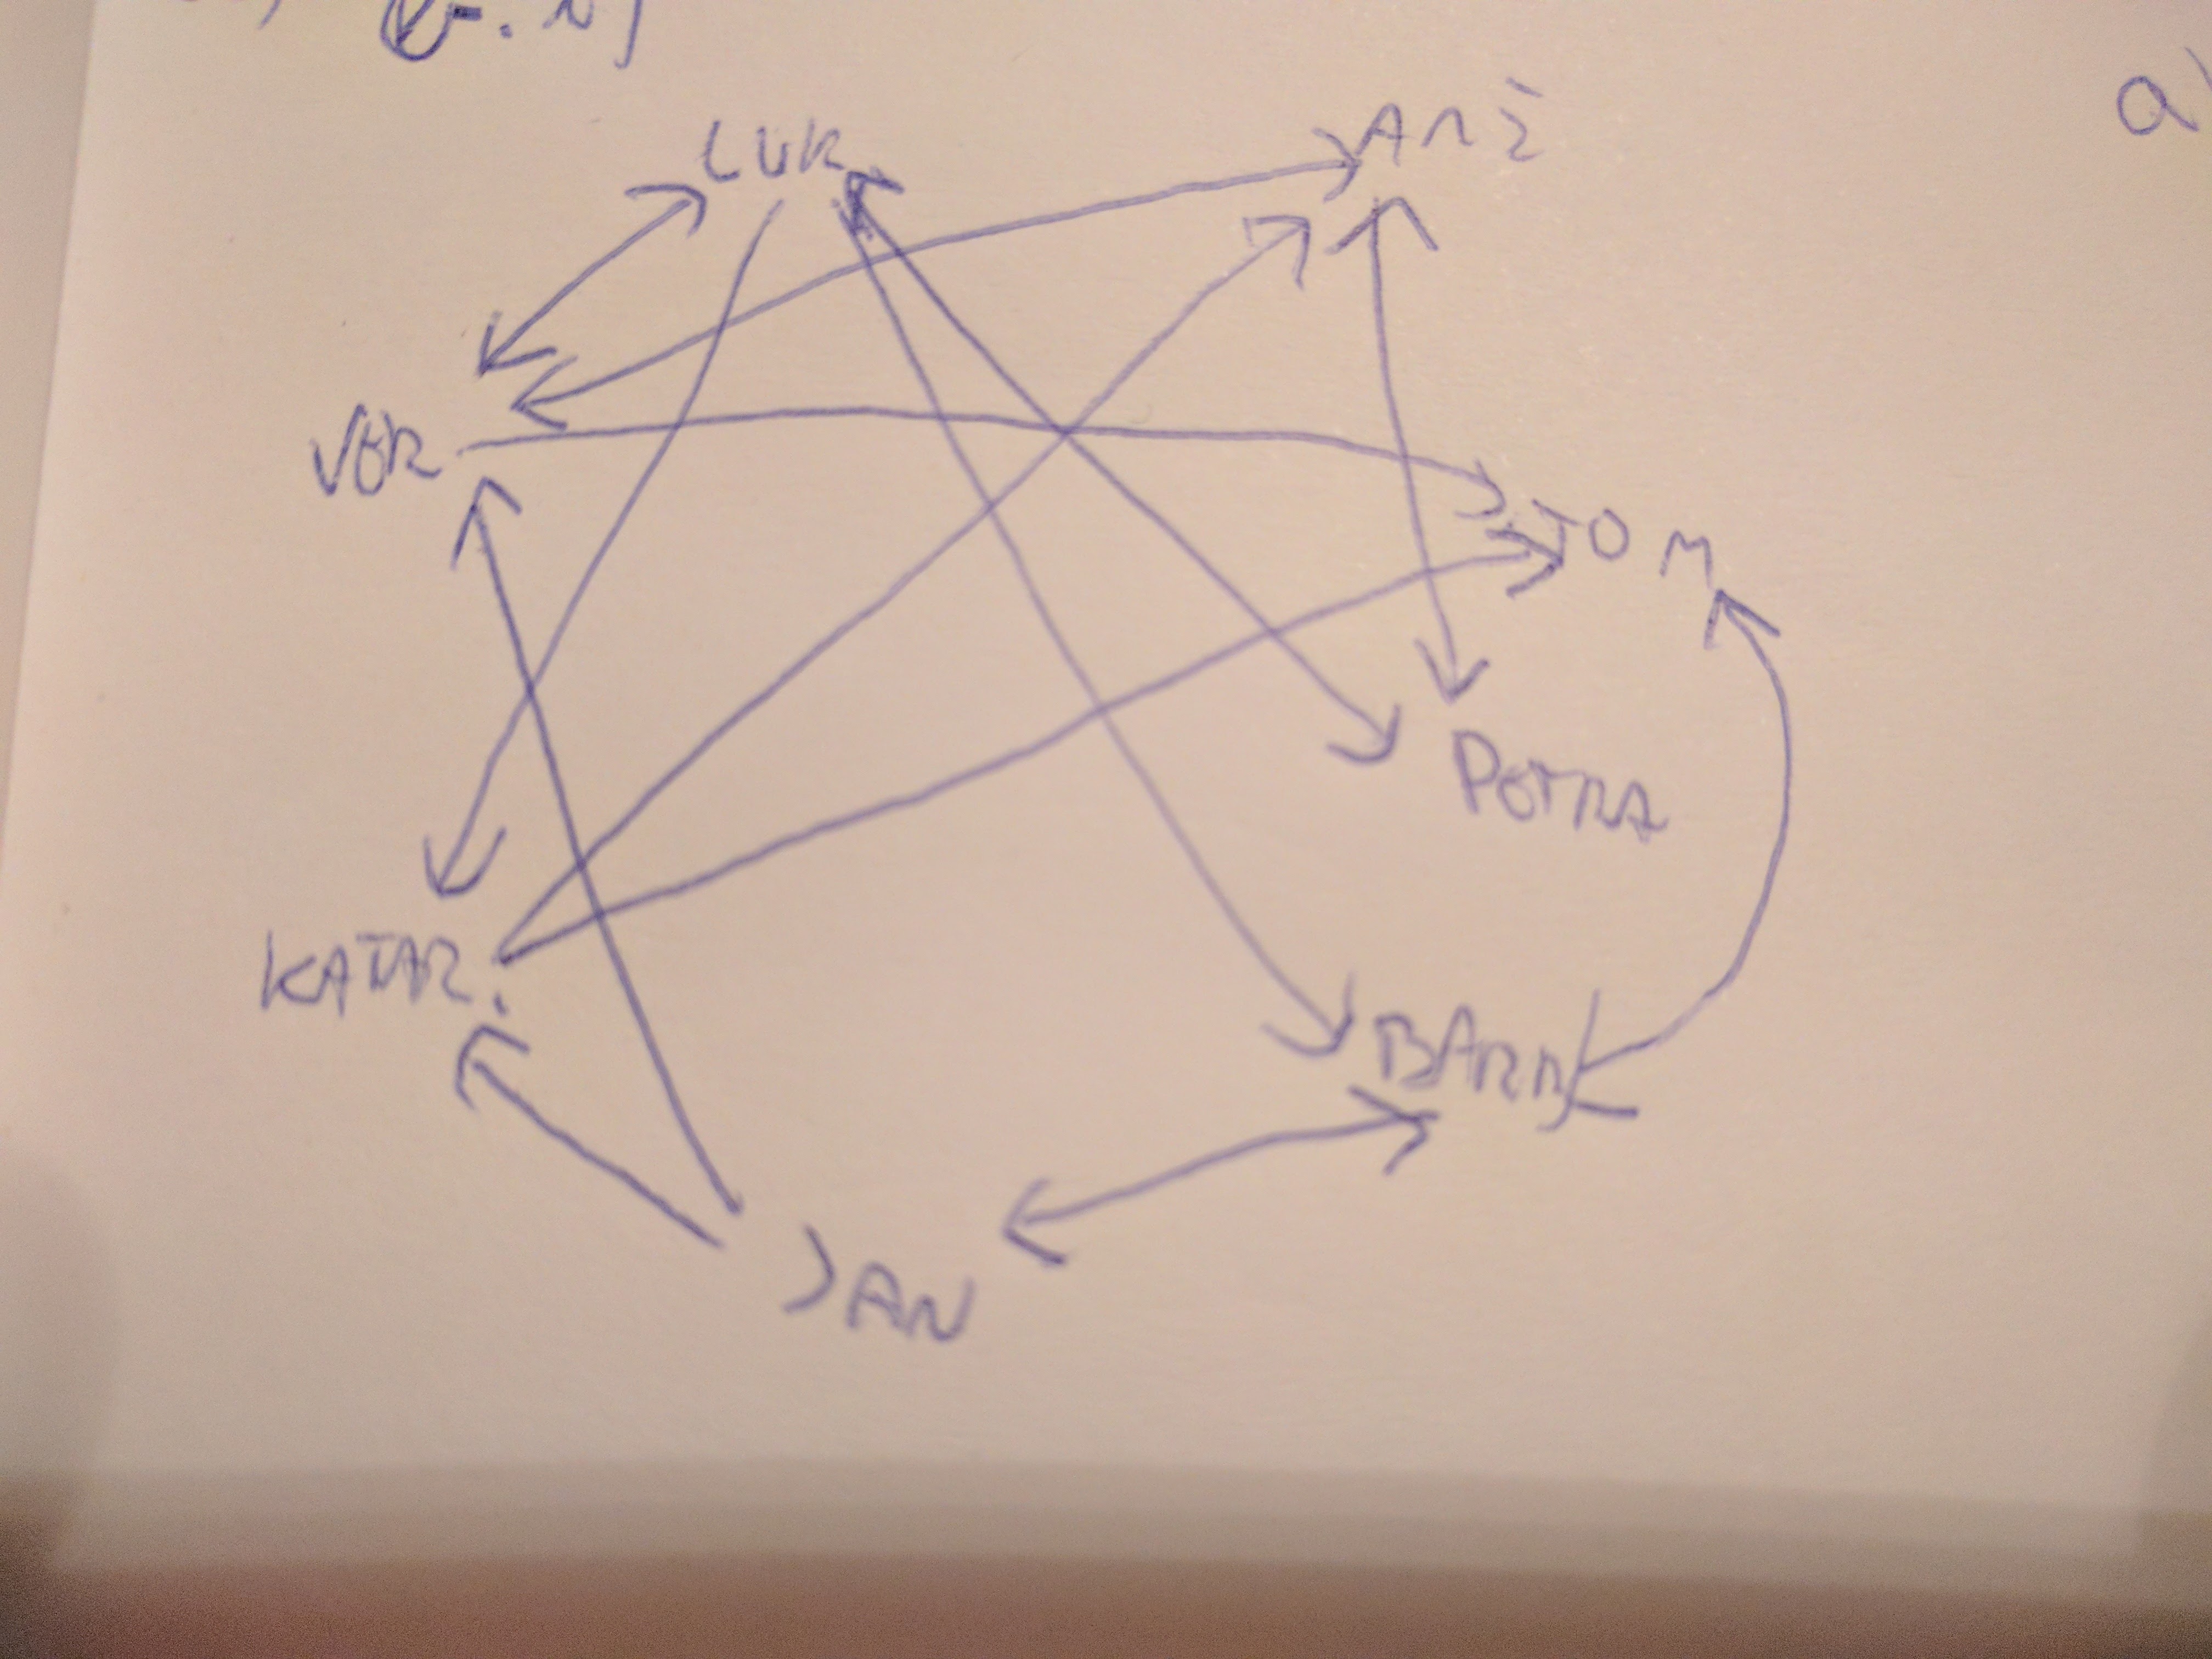 a)
LUK
VER
TOM
PETRA
KATAR.
BARB
JAN